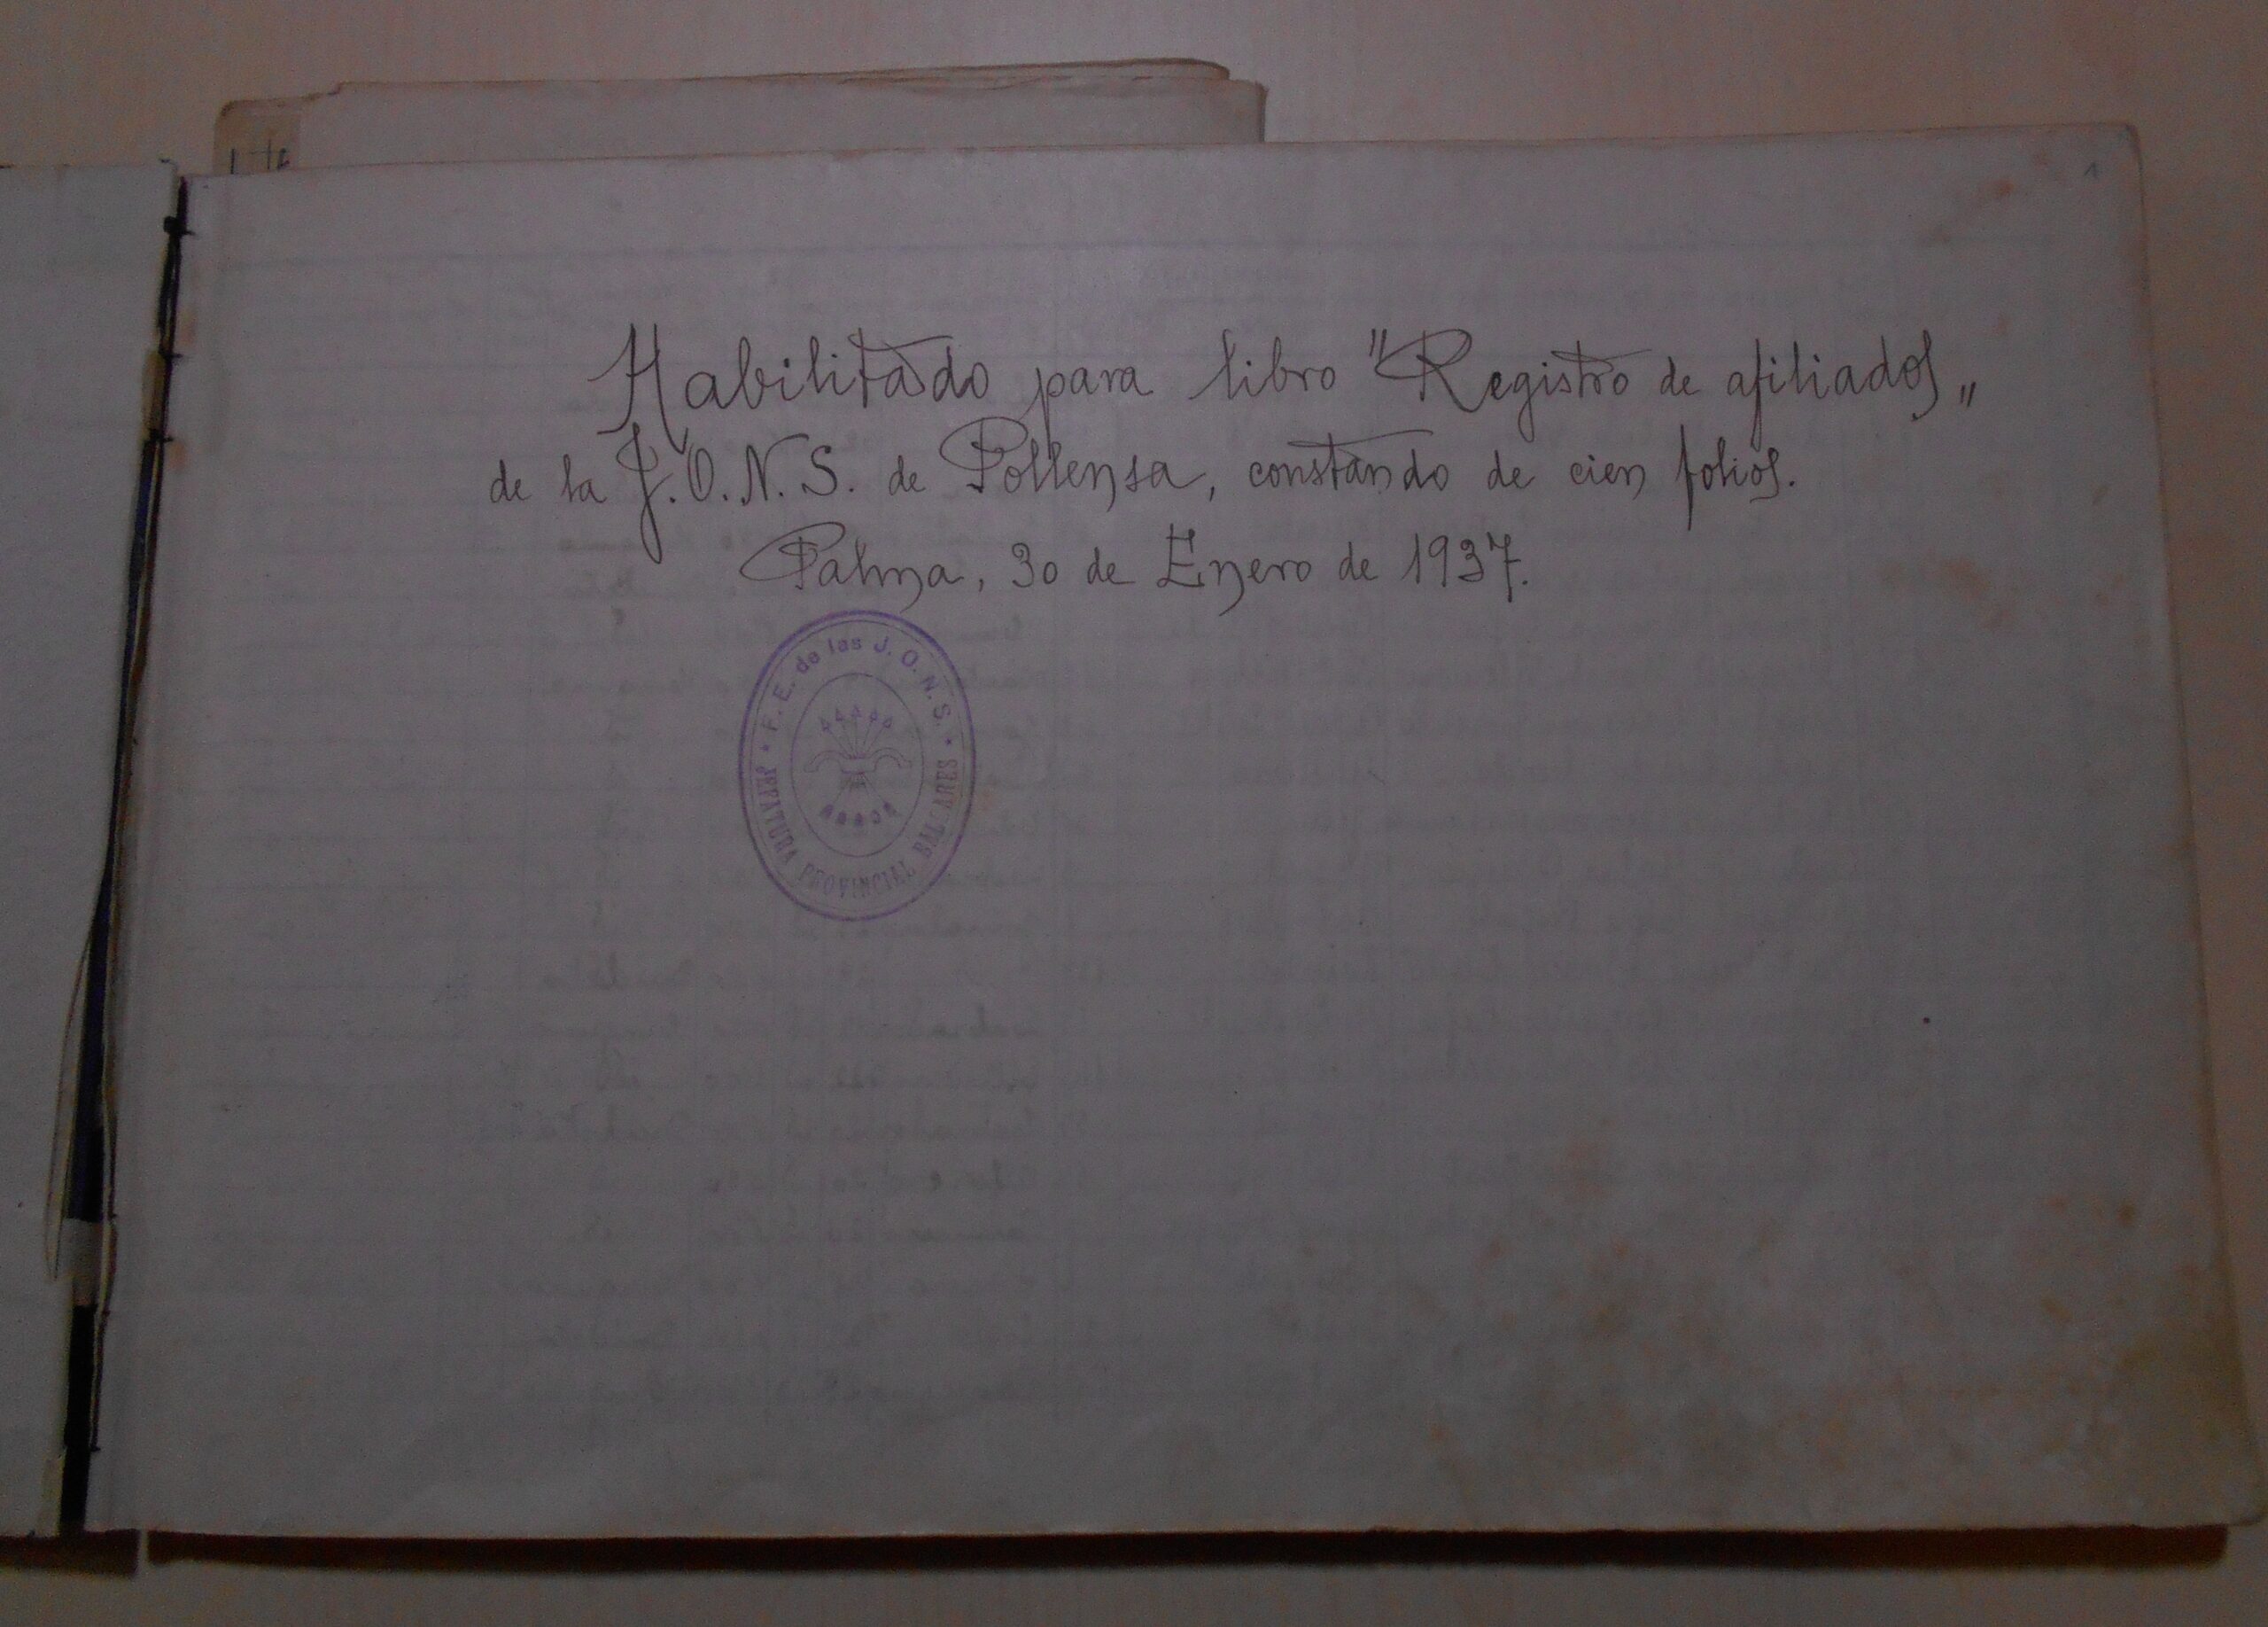 1
Habilitado para libro "Registro de afiliados„
de la J.O.N.S. de Pollensa, constando de cien folios.
Palma, 30 de Enero de 1937.
F. E. de las J. O. N. S.
JEFATURA PROVINCIAL BALEARES